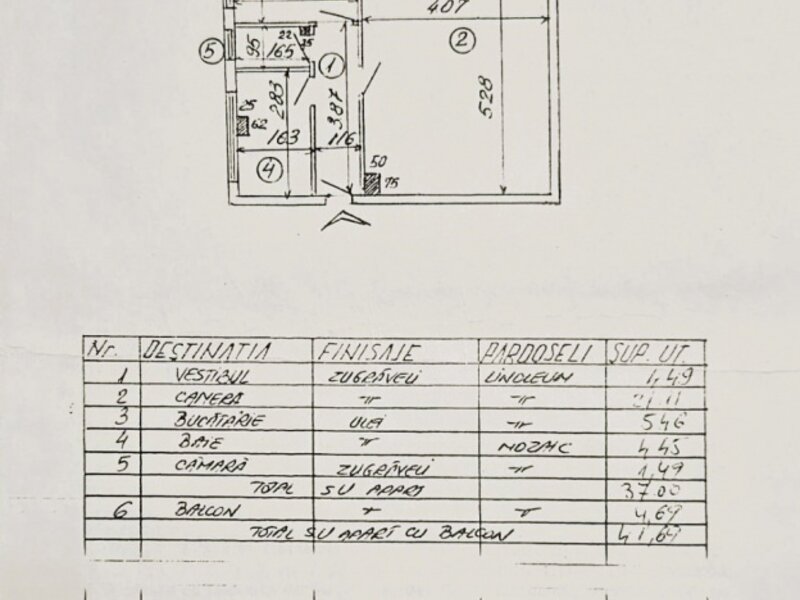 407
2
22
15
5
95
165
1
283
387
528
62
163
116
50
4
75
Nr. DESTINATIA FINISAJE PARDOSELI SUP. UT.
1 VESTIBUL ZUGRĂVELI LINOLEUM 4,49
2 CAMERA -"- -"- 21.11
3 BUCĂTĂRIE ULEI -"- 5,46
4 BAIE -"- MOZAIC 4,45
5 CĂMARĂ ZUGRĂVELI -"- 1,49
TOTAL SU APART 37.00
6 BALCON -"- -"- 4,69
TOTAL SU APART CU BALCON 41,69